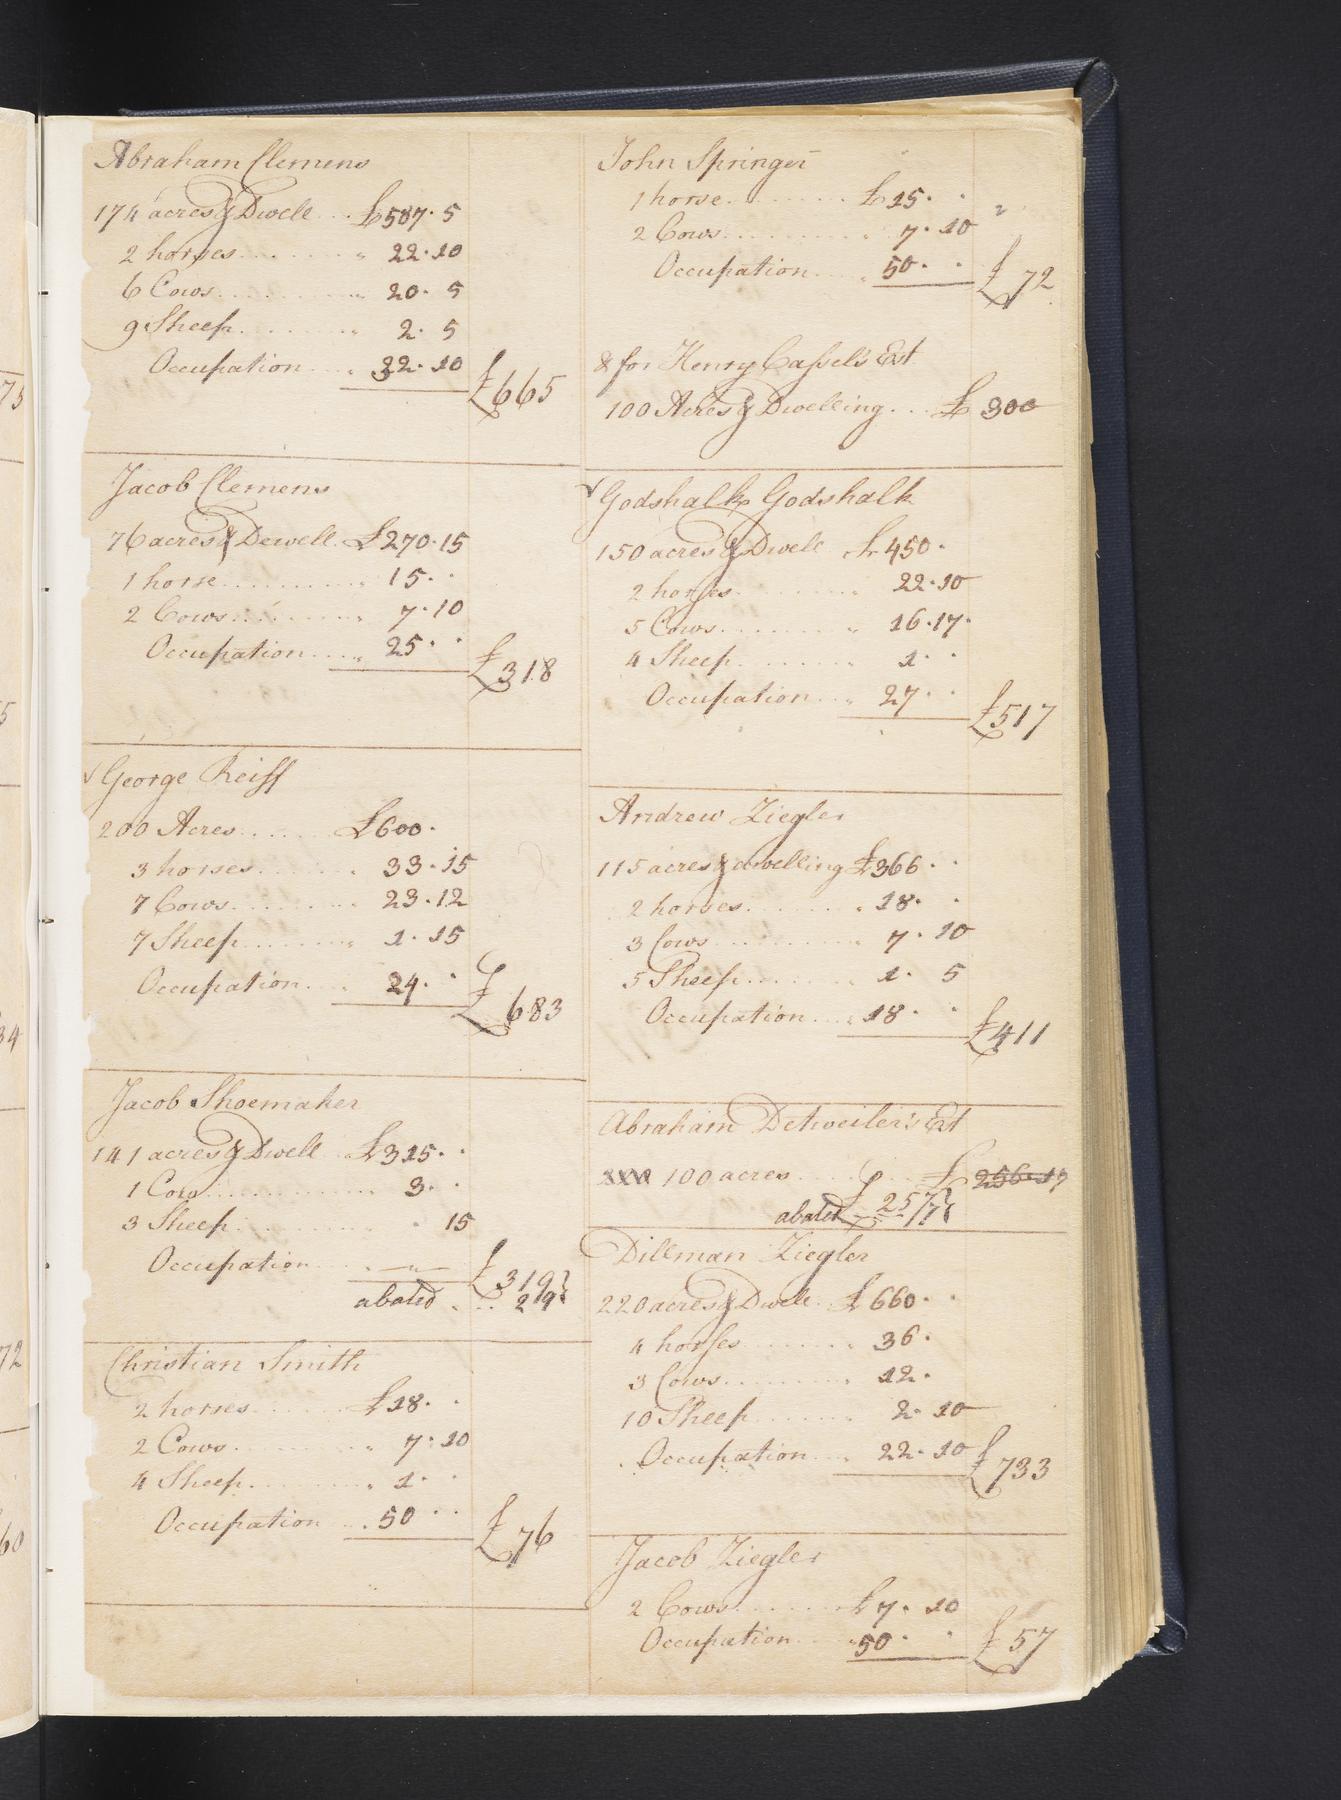 Abraham Clemens
174 acres & Dwell £587·5
2 horses 22·10
6 Cows 20·5
9 Sheep 2·5
Occupation 32·10 £665
Jacob Clemens
76 acres & Dewell £270·15
1 horse 15·
2 Cows 7·10
Occupation 25· £318
George Reiff
200 Acres £600·
3 horses 33·15
7 Cows 23·12
7 Sheep 1·15
Occupation 24· £683
Jacob Shoemaker
141 acres & Dwell £315·
1 Cow 3·
3 Sheep 15
Occupation £319
abated 29
Christian Smith
2 horses £18·
2 Cows 7·10
4 Sheep 1·
Occupation 50 £76
John Springer
1 horse £15·
2 Cows 7·10
Occupation 50· £72
& for Henry Cassel's Est
100 Acres & Dwelling £300
Godshalk Godshalk
150 acres & Dwell £450·
2 horses 22·10
5 Cows 16·17·
4 Sheep 1·
Occupation 27· £517
Andrew Ziegler
115 acres & dwelling £366·
2 horses 18·
3 Cows 7·10
5 Sheep 1·5
Occupation 18· £411
Abraham Detweiler's Est
100 acres £256·17
abated £257
Dillman Ziegler
220 acres & Dwell £660·
4 horses 36·
3 Cows 12·
10 Sheep 2·10
Occupation 22·10 £733
Jacob Ziegler
2 Cows £7·10
Occupation 50· £57